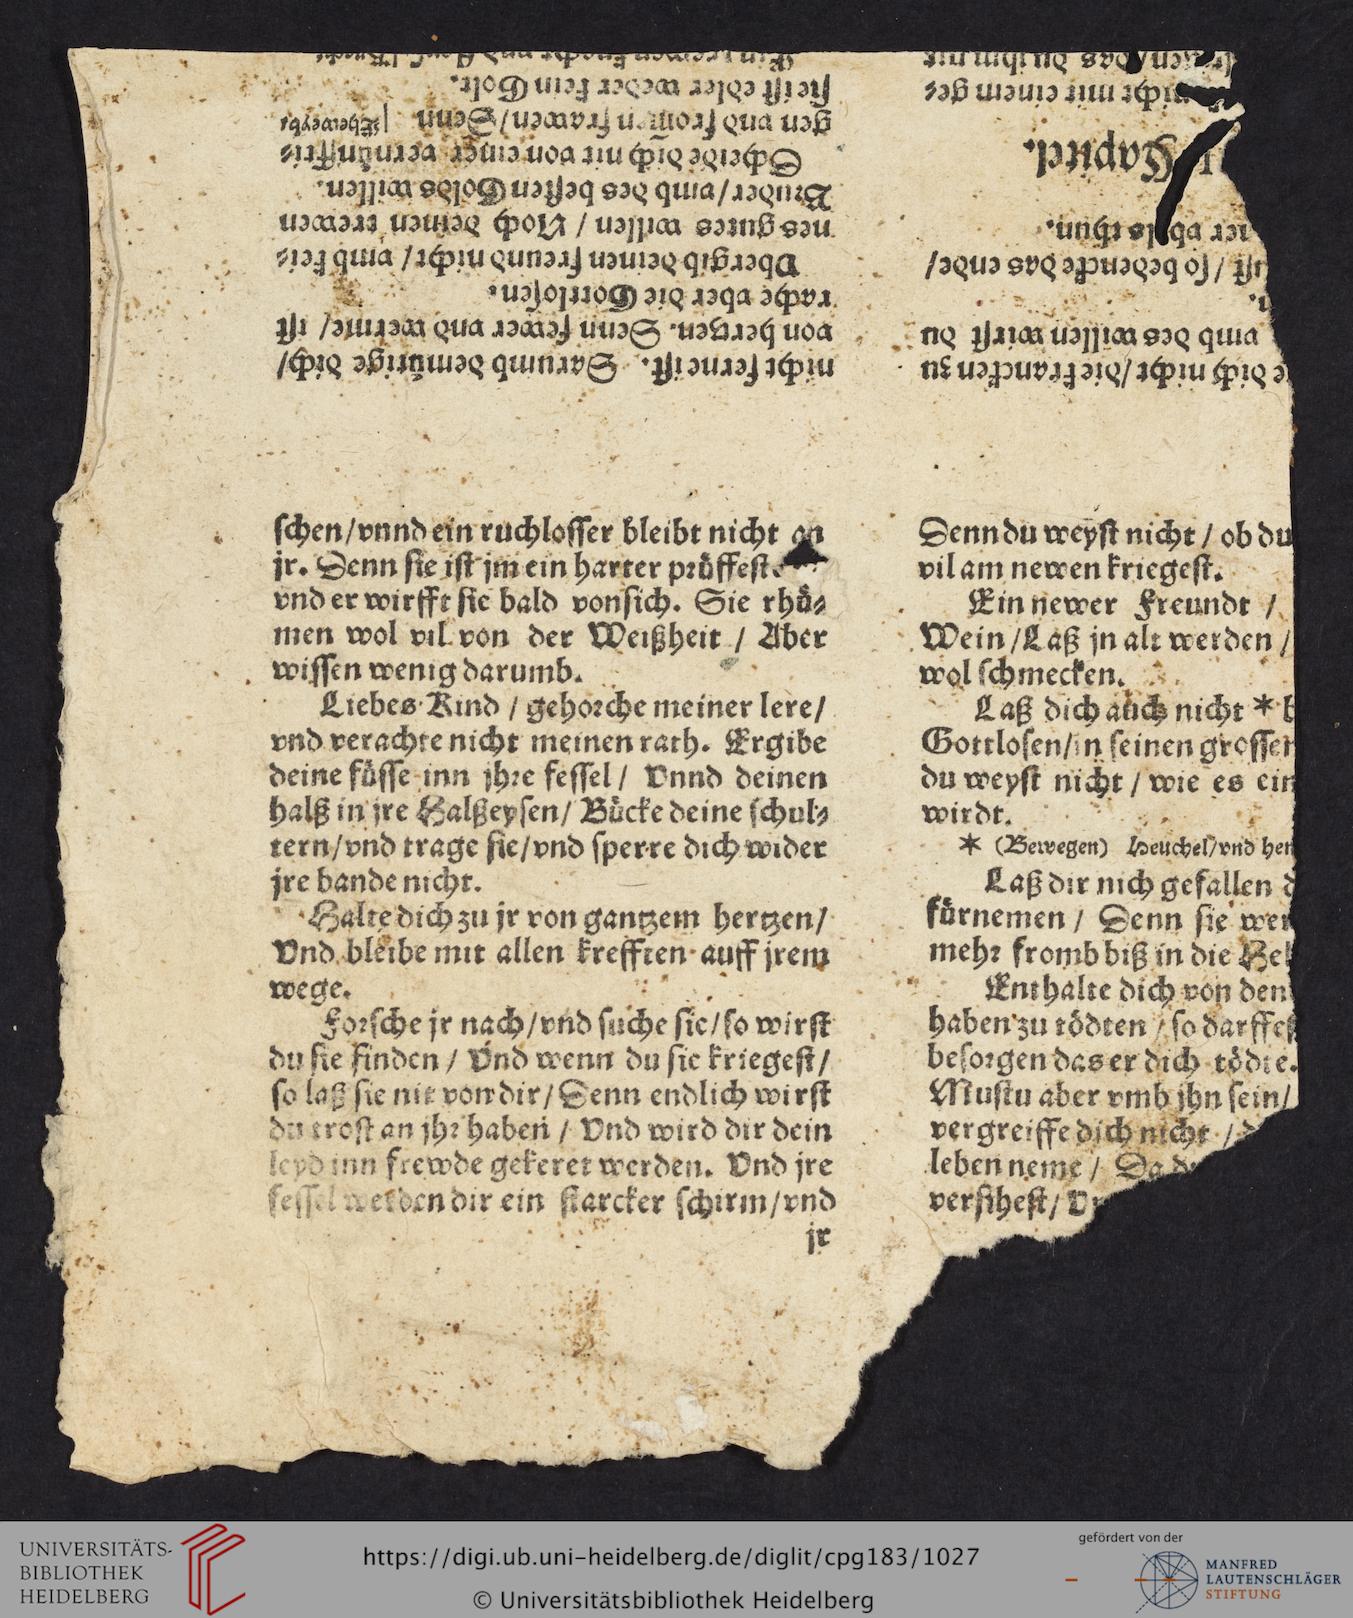 nicht ferne ist. Darumb demütige dich/
von hertzen. Denn fewer vnd würme/ ist
rache vber die Gottlosen.
Vbergib deinen freund nicht/ vmb kei⸗
nes gutes willen / Noch deinen trewen
Bruder/vmb des besten Golds willen.
Scheide dich nit von einer vernünffti⸗
gen vnd frommen frawen/Denn [Eheweybs
sie ist edler weder kein Golt.
Ein trewen knecht vnd
dich nicht/die krancken zu
vmb des willen wirst du
n.
/ so bedencke das ende/
vbels thun.
Capitel.
nicht mit einem ge⸗
das du ihm nit
schen/vnnd ein ruchlosser bleibt nicht an
jr. Denn sie ist jm ein harter prüffest
vnd er wirfft sie bald von sich. Sie rhü⸗
men wol vil von der Weißheit / Aber
wissen wenig darumb.
Liebes Kind / gehorche meiner lere/
vnd verachte nicht meinen rath. Ergibe
deine füsse inn jhre fessel / Vnnd deinen
halß in jre Halßeysen/ Bücke deine schul⸗
tern/vnd trage sie/vnd sperre dich wider
jre bande nicht.
Halte dich zu jr von gantzem hertzen/
Vnd bleibe mit allen krefften auff jrem
wege.
Forsche jr nach/vnd suche sie/so wirst
du sie finden / Vnd wenn du sie kriegest/
so laß sie nit von dir/ Denn endlich wirst
du trost an jhr haben / Vnd wird dir dein
leyd inn frewde gekeret werden. Vnd jre
fessel werden dir ein starcker schirm/vnd
jr
Denn du weyst nicht / ob du
vil am newen kriegest.
Ein newer Freundt /
Wein /Laß jn alt werden /
wol schmecken.
Laß dich auch nicht * b
Gottlosen/in seinen grossen
du weyst nicht / wie es ein
wirdt.
* (Bewegen) Heuchel/vnd hen
Laß dir nich gefallen d
fürnemen / Denn sie wer
mehr fromb biß in die Hel
Enthalte dich von den
haben zu tödten / so darffest
besorgen das er dich tödte.
Mustu aber vmb jhn sein/
vergreiffe dich nicht /
leben neme / Da
versihest/
UNIVERSITÄTS-
BIBLIOTHEK
HEIDELBERG
https://digi.ub.uni-heidelberg.de/diglit/cpg183/1027
© Universitätsbibliothek Heidelberg
gefördert von der
MANFRED
LAUTENSCHLÄGER
STIFTUNG